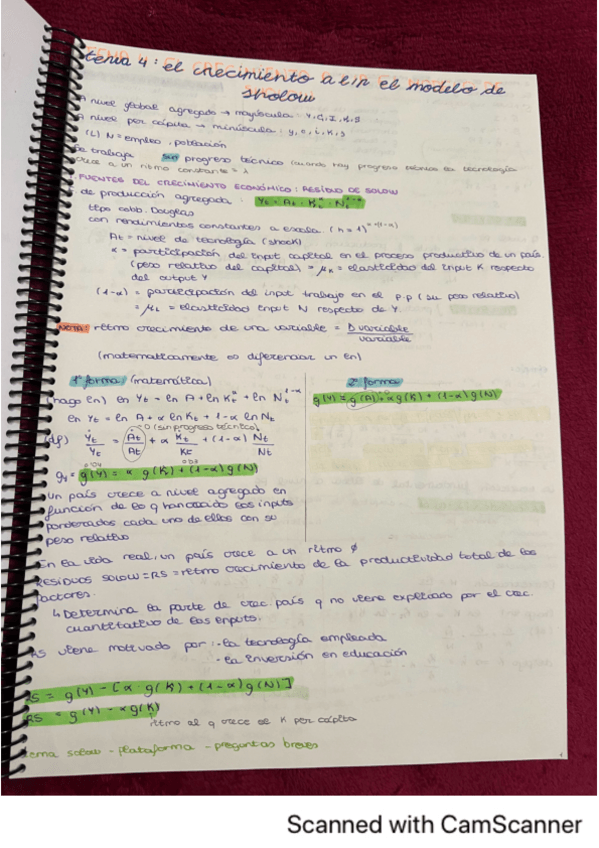 tema 4: el crecimiento a l/p el modelo de
sholow
A nivel global agregado → mayúscula: Y, C, I, K, S
A nivel per cápita → minúscula: y, c, i, k, s
(L) N = empleo, población
Se trabaja sin progreso técnico (cuando hay progreso técnico la tecnología
crece a un ritmo constante = λ
FUENTES DEL CRECIMIENTO ECONÓMICO: RESIDUO DE SOLOW
de producción agregada: Yt = At · Kt^α · Nt^1-α
tipo cobb. Douglas
con rendimientos constantes a escala (h=1)
At = nivel de tecnología (shock)
α = participación del input capital en el proceso productivo de un país.
(peso relativo del capital) = μk = elasticidad del input K respecto
del output Y
(1-α) = participación del input trabajo en el p.p (su peso relativo)
= μL = elasticidad input N respecto de Y.
NOTA: ritmo crecimiento de una variable = D variable / variable
(matematicamente es diferenciar un ln)
1ª forma: (matemática)
(hago ln) ln Yt = ln A + ln Kt^α + ln Nt^1-α
ln Yt = ln A + α ln Kt + 1-α ln Nt
0 (sin progreso técnico)
(df) Ẏt/Yt = Ȧt/At + α K̇t/Kt + (1-α) Ṅt/Nt
gy = g(Y) = α g(K) + (1-α) g(N)
Un país crece a nivel agregado en
función de lo q han crecido los inputs
ponderados cada uno de ellos con su
peso relativo
2ª forma
g(Y) = g(A) + α g(K) + (1-α) g(N)
En la vida real, un país crece a un ritmo ≠
RESIDUOS SOLOW = RS = ritmo crecimiento de la productividad total de los
factores.
↳ Determina la parte de crec. país q no viene explicado por el crec.
cuantitativo de los inputs.
RS viene motivado por: - la tecnología empleada
- la inversión en educación
RS = g(Y) - [α g(K) + (1-α) g(N)]
RS = g(Y) - α g(K)
ritmo al q crece es K per cápita
tema solow - plataforma - preguntas breves
Scanned with CamScanner